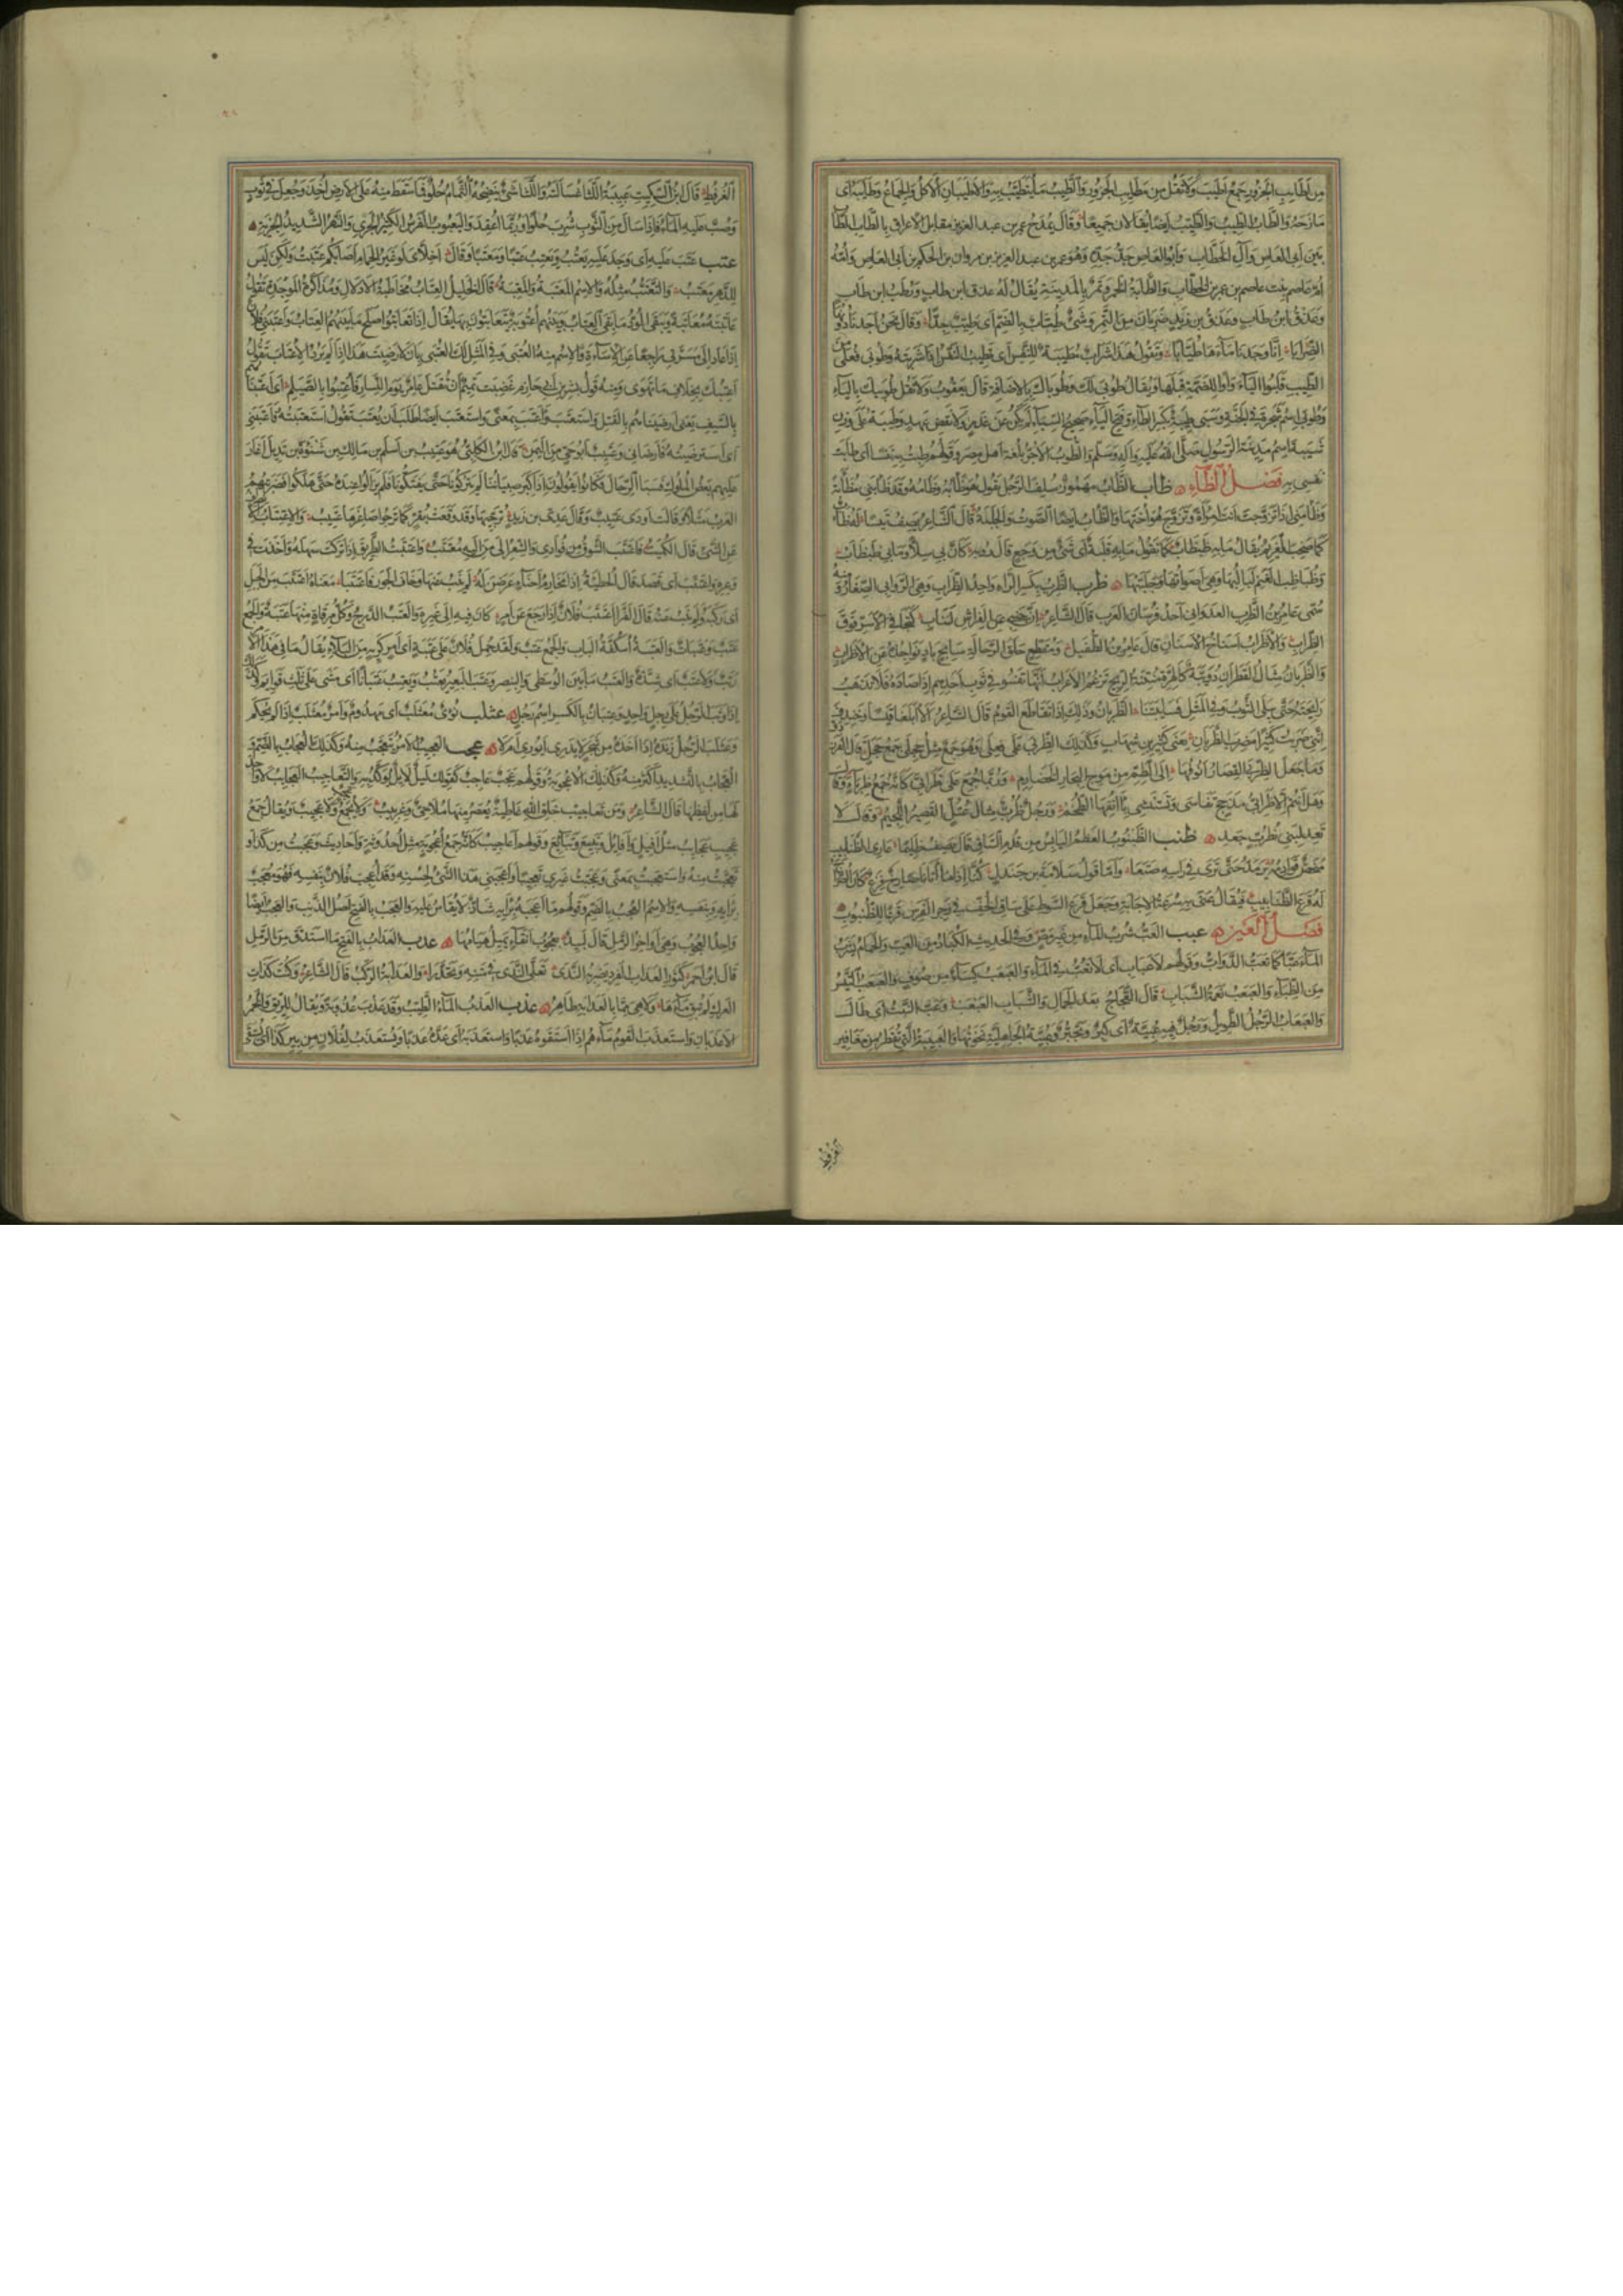 من أطايب الجزور جمع أطيب ولا تقل من مطايب الجزور والطيب ما يتطيب به والأطيبان الأكل والجماع وطايبه أي
مازحه والطاب الطيب والطيب أيضا يقالان جميعا وقال يمدح عمر بن عبد العزيز مقابل الأعراق بالطاب الطاب
بين أبي العاص وآل الخطاب وأبو العاص جد جده وهو عمر بن عبد العزيز بن مروان بن الحكم بن أبي العاص وأمه
أم عاصم بنت عاصم بن عمر بن الخطاب والطابة الخمر وتمر بالمدينة يقال له عذق ابن طاب ورطب ابن طاب
وعذق ابن طاب وعذق بن زيد ضربان من التمر وشيء طياب بالضم أي طيب جدا وقال نحن أجدنا دونها
الضرابا إنا وجدنا ماءها طيابا وتقول هذا شراب مطيبة للنفس أي تطيب النفس إذا شربته وطوبى فعلى من
الطيب قلبوا الياء واوا للضمة قبلها ويقال طوبى لك وطوباك بالإضافة قال يعقوب ولا تقل طوبيك بالياء
وطوبى اسم شجرة في الجنة وسبي طيبة بكسر الطاء وفتح الياء صحيح السباء لم يكن عن غدر ولا نقض عهد وطيبة على وزن
شيبة اسم مدينة الرسول صلى الله عليه وآله وسلم والطوب الآجر بلغة أهل مصر وقولهم طبت به نفسا أي طابت
نفسي به فصل الظاء ظأب الظأب مهموز سلف الرجل تقول هو ظأبه وظأمه وقد ظاءبني مظاءبة
وظاءمني إذا تزوجت أنت امرأة وتزوج هو أختها والظأب أيضا الصوت والجلبة قال الشاعر يصف تيسا له ظأب
كما صخب الغريم يقال ما به ظبظاب كما تقول ما به قلبة أي شيء من وجع قال رؤبة كأن بي سلا وما بي ظبظاب
وظباظب الغنم لبالبها وهي أصواتها وجلبتها ظرب الظرب بكسر الراء واحد الظراب وهي الروابي الصغار ومنه
سمي عامر بن الظرب العدواني أحد فرسان العرب قال الشاعر إن جنبي عن الفراش لناب كتجافي الأسر فوق
الظراب والأظراب أسناخ الأسنان قال عامر بن الطفيل ومقطع حلق الرحالة سابح باد نواجذه عن الأظراب
والظربان مثال القطران دويبة كالهرة منتنة الريح تزعم الأعراب أنها تفسو في ثوب أحدهم إذا صادها فلا تذهب
رائحته حتى يبلى الثوب وفي المثل فسا بيننا الظربان وذلك إذا تقاطع القوم قال الشاعر ألا أبلغا قيسا وخندف
أنني ضربت كثيرا مضرب الظربان يعني كثير بن شهاب وكذلك الظربى على فعلى وهو جمع مثل حجلى جمع حجل قال الفرزدق
وما جعل الظربى القصار أنوفها إلى الطم من موج البحار الخضارم وربما جمع على ظرابي كأنه جمع ظرباء وقال
وهل أنتم إلا ظرابي مذحج تفاسى وتستنشي بآنفها الطخم ورجل ظرب مثال عتل القصير اللحيم وقال لا
تعدليني بظرب جعد ظنب الظنبوب العظم اليابس من قدم الساق قال يصف ظليما عاري الظنابيب
منحص قوادمه يرمد حتى ترى في رأسه صتعا وأما قول سلامة بن جندل كنا إذا ما أتانا صارخ فزع كان الصراخ
له قرع الظنابيب فيقال عنى به سرعة الإجابة وجعل قرع السوط على ساق الخف في زجر الفرس قرعا للظنبوب
فصل العين عبب العب شرب الماء من غير مص وفي الحديث الكباد من العب والحمام يشرب
الماء عبا كما تعب الدواب وقولهم لا عباب أي لا تعب في الماء والعبعب كساء من صوف والعبعب التيس
من الظباء والعبعب نعمة الشباب قال العجاج بعد الجمال والشباب العبعب وعب النبت أي طال
والعبعاب الرجل الطويل ورجل فيه عبية أي كبر وتجبر وعبية الجاهلية نخوتها والعبيبة التي تقطر من مغافير
العرفط
العرفط قال ابن السكيت عبيبة اللثا غسالته واللثا شيء ينضحه الثمام حلو فما سقط منه على الأرض أخذ وجعل في ثوب
وصب عليه الماء فإذا سال من الثوب شرب حلوا وربما أعقد واليعبوب الفرس الكثير الجري والنهر الشديد الجرية
عتب عتب عليه أي وجد عليه يعتب ويعتب عتبا ومعتبا وقال أخلاي لو غير الحمام أصابكم عتبت ولكن ليس
للدهر معتب والتعتب مثله والاسم المعتبة والمعتبة قال الخليل العتاب مخاطبة الإدلال ومذاكرة الموجدة تقول
عاتبته معاتبة ويبقى الود ما بقي العتاب وبينهم أعتوبة يتعاتبون بها يقال إذا تعاتبوا أصلح ما بينهم العتاب وأعتبني فلان
إذا عاد إلى مسرتي راجعا عن الإساءة والاسم منه العتبى وفي المثل لك العتبى بأن لا رضيت هذا إذا لم يرد الإعتاب تقول
أعتبك بخلاف ما تهوى ومنه قول بشر بن أبي خازم غضبت تميم أن تقتل عامر يوم النسار فأعتبوا بالصيلم أي أعتبناهم
بالسيف يعني أرضيناهم بالقتل واستعتب وأعتب بمعنى واستعتب أيضا طلب أن يعتب تقول استعتبته فأعتبني
أي استرضيته فأرضاني وعتيب أبو حي من اليمن قال ابن الكلبي هو عتيب بن أسلم بن مالك بن شنوءة بن تديل أغار
عليهم بعض الملوك فسبا الرجال فكانوا يقولون إذا كبر صبياننا لم يتركونا حتى يفتكونا فلم يزالوا عنده حتى هلكوا فضربتهم
العرب مثلا وقالت أودى عتيب وقال عدي بن زيد نرجيها وقد وقعت بقر كما ترجو أصاغرها عتيب والاعتتاب الانصراف
عن الشيء قال الكميت فاعتتب الشوق من فؤادي والشعر إلى من إليه معتتب واعتتبت الطريق إذا تركت سهله وأخذت في
وعره واعتتب أي قصد قال الحطيئة إذا مخارم أحناء عرضن له لم ينب عنها وخاف الجور فاعتتبا معناه اعتتب من الجبل
أي ركبه ولم ينب عنه قال الفراء اعتتب فلان إذا رجع عن أمر كان فيه إلى غيره والعتب الدرج وكل مرقاة منها عتبة والجمع
عتب وعتبات والعتبة أسكفة الباب والجمع عتب ولقد حمل فلان على عتبة أي أمر كريه من البلاء يقال ما في هذا الأمر
رتب ولا عتب أي شدة والعتب ما بين الوسطى والبنصر وعتب البعير يعتب ويعتب عتبانا أي مشى على ثلث قوائم وكذلك
إذا وثب الرجل على رجل واحدة وعتبان بالكسر اسم رجل عثلب نؤي معثلب أي مهدوم وأمر معثلب إذا لم يحكم
وعثلب الرجل زنده إذا أخذه من شجر لا يدري أيوري أم لا عجب العجيب الأمر يتعجب منه وكذلك العجاب بالضم و
العجاب بالتشديد أكثر منه وكذلك الأعجوبة وقولهم عجب عاجب كقولك ليل لايل يؤكد به والتعاجيب العجائب لا واحد
لها من لفظها قال الشاعر ومن تعاجيب خلق الله غاطية يعصر منها ملاحي وغربيب ولا يجمع عجب ولا عجيب ويقال جمع
عجيب عجائب مثل أفيل وأفائل وتبيع وتبائع وقولهم أعاجيب كأنه جمع أعجوبة مثل أحدوثة وأحاديث وعجبت من كذا و
تعجبت منه واستعجبت بمعنى وعجبت غيري تعجيبا وأعجبني هذا الشيء لحسنه وقد أعجب فلان بنفسه فهو معجب
برأيه وبنفسه والاسم العجب بالضم وقولهم ما أعجبه برأيه شاذ لا يقاس عليه والعجب بالفتح أصل الذنب والعجب أيضا
واحد العجوب وهي أواخر الرمل قال لبيد بعجوب أنقاء يميل هيامها عدب العداب بالفتح ما استدق من الرمل
قال ابن أحمر كثور العداب الفرد يضربه الندى تعلى الندى في متنه وتحدرا والعدابة الركب قال الشاعر وكنت كذات
العرك لم تبق ماءها ولا هي مما بالعدابة طاهر عذب العذب الماء الطيب وقد عذب عذوبة ويقال للريق والخمر
الأعذبان واستعذب القوم ماءهم إذا استقوه عذبا واستعذبه أي عده عذبا ويستعذب لفلان من بئر كذا أي يستقى